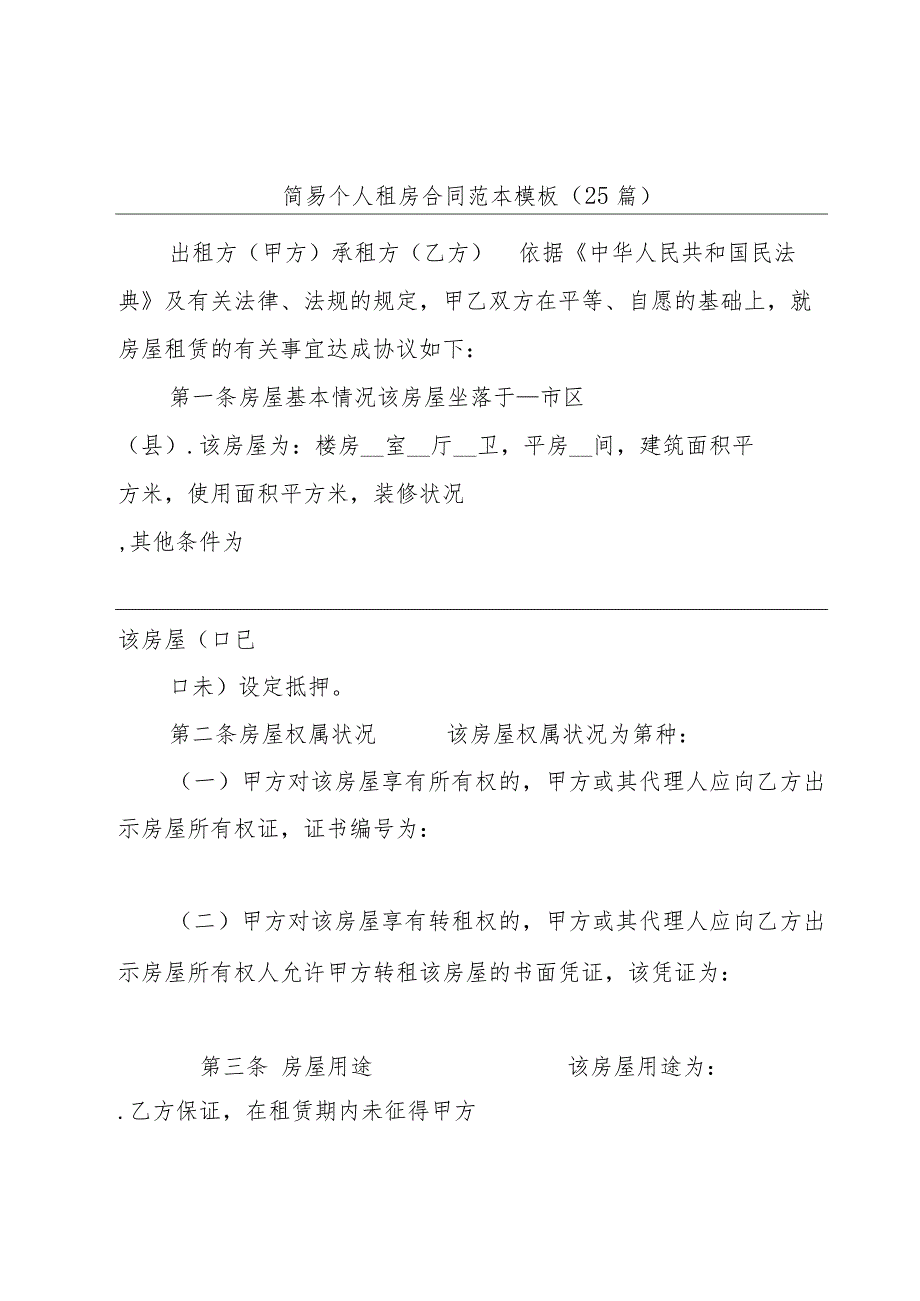 简易个人租房合同范本模板（25 篇）
出租方（甲方）承租方（乙方） 依据《中华人民共和国民法
典》及有关法律、法规的规定，甲乙双方在平等、自愿的基础上，就
房屋租赁的有关事宜达成协议如下：
第一条房屋基本情况该房屋坐落于—市区
（县）.该房屋为：楼房__室__厅__卫，平房__间，建筑面积平
方米，使用面积平方米，装修状况
,其他条件为
该房屋（口已
口未）设定抵押。
第二条房屋权属状况 该房屋权属状况为第种：
（一）甲方对该房屋享有所有权的，甲方或其代理人应向乙方出
示房屋所有权证，证书编号为：
（二）甲方对该房屋享有转租权的，甲方或其代理人应向乙方出
示房屋所有权人允许甲方转租该房屋的书面凭证，该凭证为：
第三条 房屋用途 该房屋用途为：
.乙方保证，在租赁期内未征得甲方